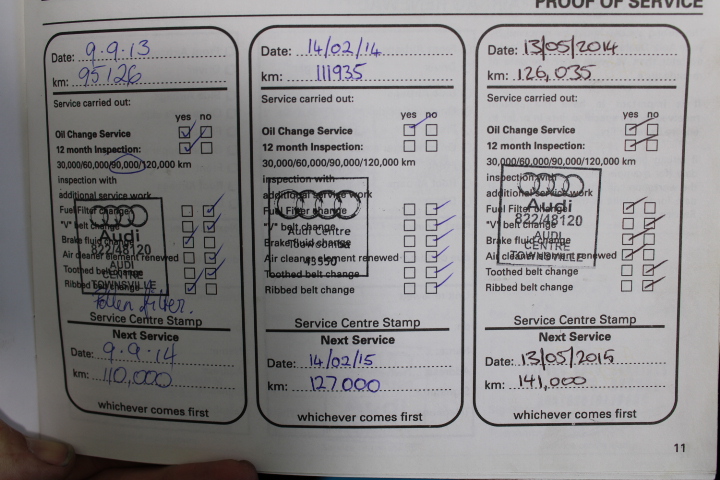 PROOF OF SERVICE
Date: 9.9.13
km: 95126
Service carried out:
yes no
Oil Change Service
12 month Inspection:
30,000/60,000/90,000/120,000 km
inspection with
additional service work
Fuel Filter change
"V" belt change
Brake fluid change
Air cleaner element renewed
Toothed belt change
Ribbed belt change
Audi
822/48120
AUDI
CENTRE
TOWNSVILLE
Pollen filter.
Service Centre Stamp
Next Service
Date: 9.9.14
km: 110,000
whichever comes first
Date: 14/02/14
km: 111935
Service carried out:
yes no
Oil Change Service
12 month Inspection:
30,000/60,000/90,000/120,000 km
inspection with
additional service work
Fuel Filter change
"V" belt change
Brake fluid change
Air cleaner element renewed
Toothed belt change
Ribbed belt change
Audi Centre
Toowoomba
43550
Service Centre Stamp
Next Service
Date: 14/02/15
km: 127000
whichever comes first
Date: 13/05/2014
km: 126,035
Service carried out:
yes no
Oil Change Service
12 month Inspection:
30,000/60,000/90,000/120,000 km
inspection with
additional service work
Fuel Filter change
"V" belt change
Brake fluid change
Air cleaner element renewed
Toothed belt change
Ribbed belt change
Audi
822/48120
AUDI
CENTRE
TOWNSVILLE
Service Centre Stamp
Next Service
Date: 13/05/2015
km: 141,000
whichever comes first
11